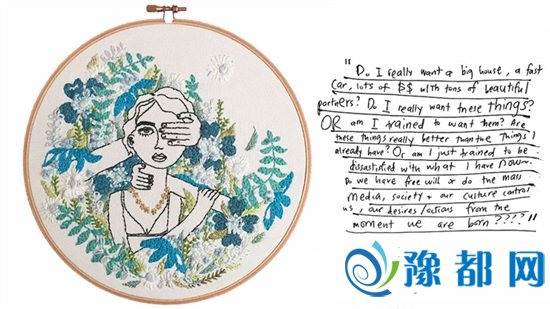 "Do I really want a big house, a fast
car, lots of $$ with tons of beautiful
partners? Do I really want these things?
OR am I trained to want them? Are
these things really better than the things I
already have? Or am I just trained to be
dissatisfied with what I have now.
Do we have free will or do the mass
media, society + our culture control
us, our desires/actions from the
moment we are born????"
豫都网